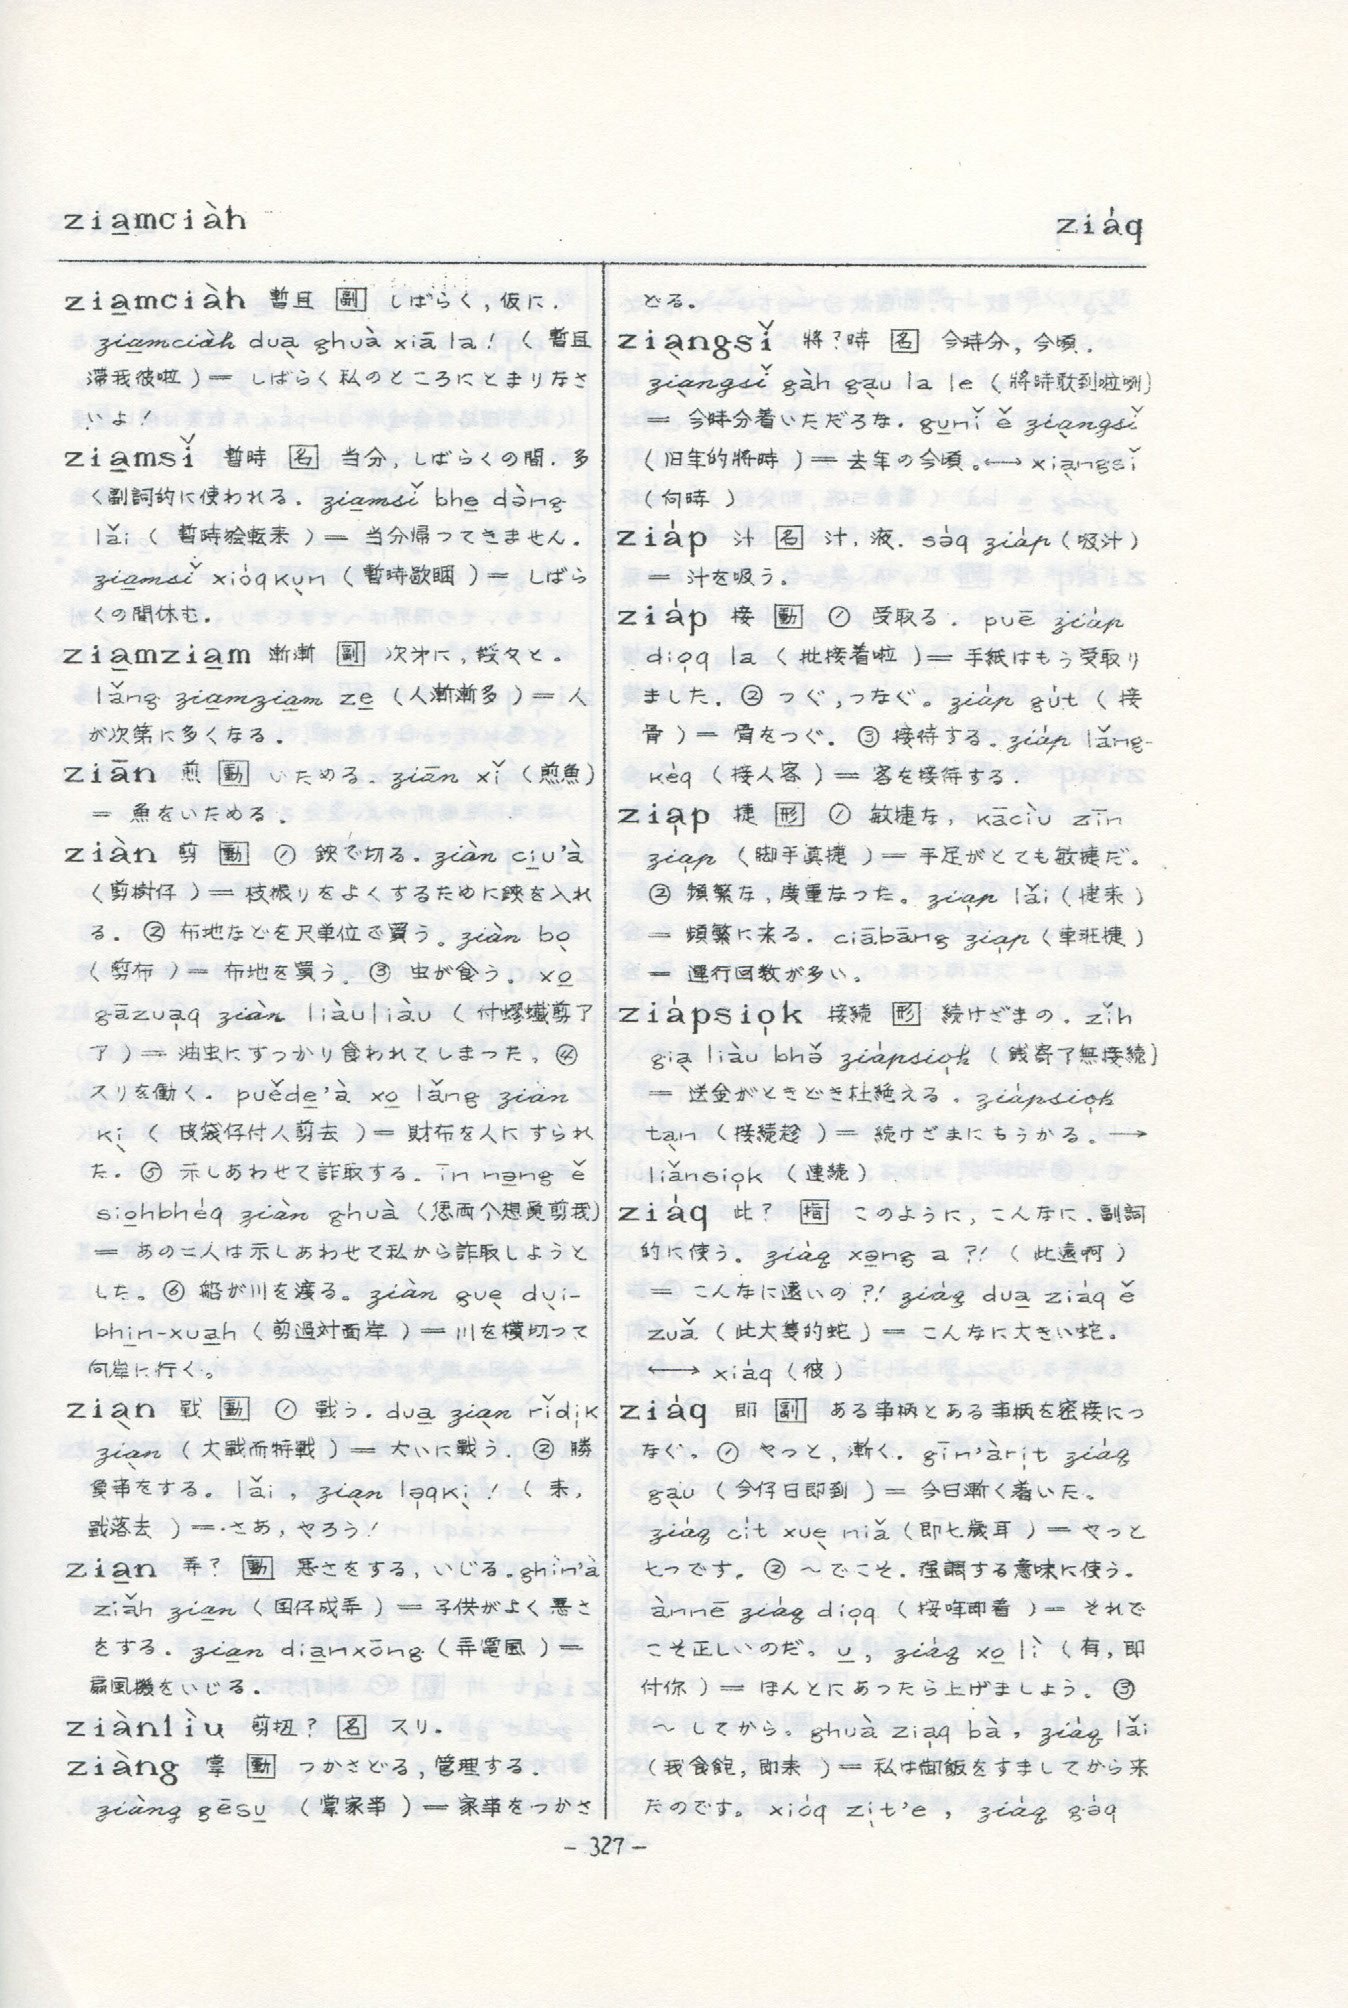 zia̱mciàh
ziáq
zia̱mciàh 暫且 副 しばらく,仮に.
zia̱mciàh dua̩ ghuà xiā la! (暫且
滞我彼啦)= しばらく私のところにとまりなさ
いよ!
zia̱msǐ 暫時 名 当分,しばらくの間.多
く副詞的に使われる. zia̱msǐ bhe̱ dǝ̀ng
lǎi (暫時獪転来)= 当分帰ってきません.
zia̱msǐ xióqku̩n (暫時歇睏)= しばら
くの間休む.
zia̱mzia̱m 漸漸 副 次才に,段々と。
lǎng zia̱mzia̱m ze̱ (人漸漸多)= 人
が次第に多くなる.
ziān 煎 動 いためる. ziān xǐ (煎魚)
= 魚をいためる.
ziàn 剪 動 ① 鋏で切る. ziàn ci̱u'à
(剪樹仔)= 枝振りをよくするために鋏を入れ
る. ② 布地などを尺単位で買う。ziàn bo̩
(剪布)= 布地を買う. ③ 虫が食う. xo̱
gāzua̩q ziàn liàuliàu (付蟧蠘剪了
了)= 油虫にすっかり食われてしまった。④
スリを働く. puěde̱'à xo̱ lǎng ziàn
ki̩ (皮袋仔付人剪去)= 財布を人にすられ
た. ⑤ 示しあわせて詐取する. īn nǝ̱ng ě
sio̱hbhéq ziàn ghuà (恁両个想愛剪我)
= あの二人は示しあわせて私から詐取しようと
した。⑥ 船が川を渡る。ziàn gue̩ du̩i-
bhi̩n-xua̱h (剪過対面岸)= 川を横切って
向岸に行く。
zia̩n 戰 動 ① 戰う. dua̱ zia̩n rǐdi̩k
zia̩n (大戰而特戰)= 大いに戰う. ② 勝
負事をする. lǎi, zia̩n lǝ̩qki̩! (来,
戰落去)= さあ,やろう!
zia̱n 弄? 動 悪さをする,いじる. ghin'à
ziǎh zia̱n (囝仔成弄)= 子供がよく悪さ
をする. zia̱n dia̱nxōng (弄電風)=
扇風機をいじる.
ziànlìu 剪扭? 名 スリ.
ziàng 掌 動 つかさどる,管理する.
ziàng gēsu̱ (掌家事)= 家事をつかさ
どる.
zia̩ngsǐ 將?時 名 今時分,今頃.
zia̩ngsǐ gàh ga̩u la le (將時敢到啦咧)
= 今時分着いただろな. gu̱nǐ ě zia̩ngsǐ
(旧年的將時)= 去年の今頃。←→ xia̩ngsǐ
(向時)
ziáp 汁 名 汁,液. sǝ́q ziáp (吸汁)
= 汁を吸う。
ziáp 接 動 ① 受取る. puē ziáp
dio̩q la (批接着啦)= 手紙はもう受取り
ました. ② つぐ,つなぐ。ziáp gút (接
骨)= 骨をつぐ. ③ 接待する. ziáp lǎng-
kéq (接人客)= 客を接待する.
zia̩p 捷 形 ① 敏捷な, kāciù zīn
zia̩p (脚手真捷)= 手足がとても敏捷だ。
② 頻繁な,度重なった。zia̩p lǎi (捷来)
= 頻繁に来る. ciābāng zia̩p (車班捷)
= 運行回数が多い。
ziápsio̩k 接続 形 続けざまの. zǐh
gia̩ liàu bhǒ ziápsio̩k (銭寄了無接続)
= 送金がときどき杜絶える. ziápsio̩k
ta̩n (接続趁)= 続けざまにもうかる。→
liǎnsio̩k (連続)
ziáq 此? 指 このように,こんなに.副詞
的に使う. ziáq xǝ̱ng a ?! (此遠啊)
= こんなに遠いの?! ziáq dua̱ ziáq ě
zuǎ (此大隻的蛇)= こんなに大きい蛇。
←→ xiáq (彼)
ziáq 即 副 ある事柄とある事柄を密接につ
なぐ. ① やっと,漸く. gīn'àri̩t ziáq
ga̩u (今仔日即到)= 今日漸く着いた.
ziáq cít xue̩ niǎ (即七歳耳)= やっと
七つです. ② ～でこそ.強調する意味に使う.
ànnē ziáq dio̩q (按哖即着)= それで
こそ正しいのだ. u̱, ziáq xo̱ lì (有,即
付你)= ほんとにあったら上げましょう. ③
～してから. ghuà zia̩q bà, ziáq lǎi
(我食飽,即来)= 私は御飯をすましてから来
たのです。xióq zi̩t'e, ziáq gǝ́q
— 327 —